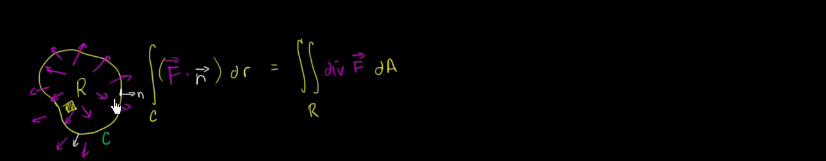 R
n
C
∫_C (F⃗ · n⃗) dr = ∬_R div F⃗ dA